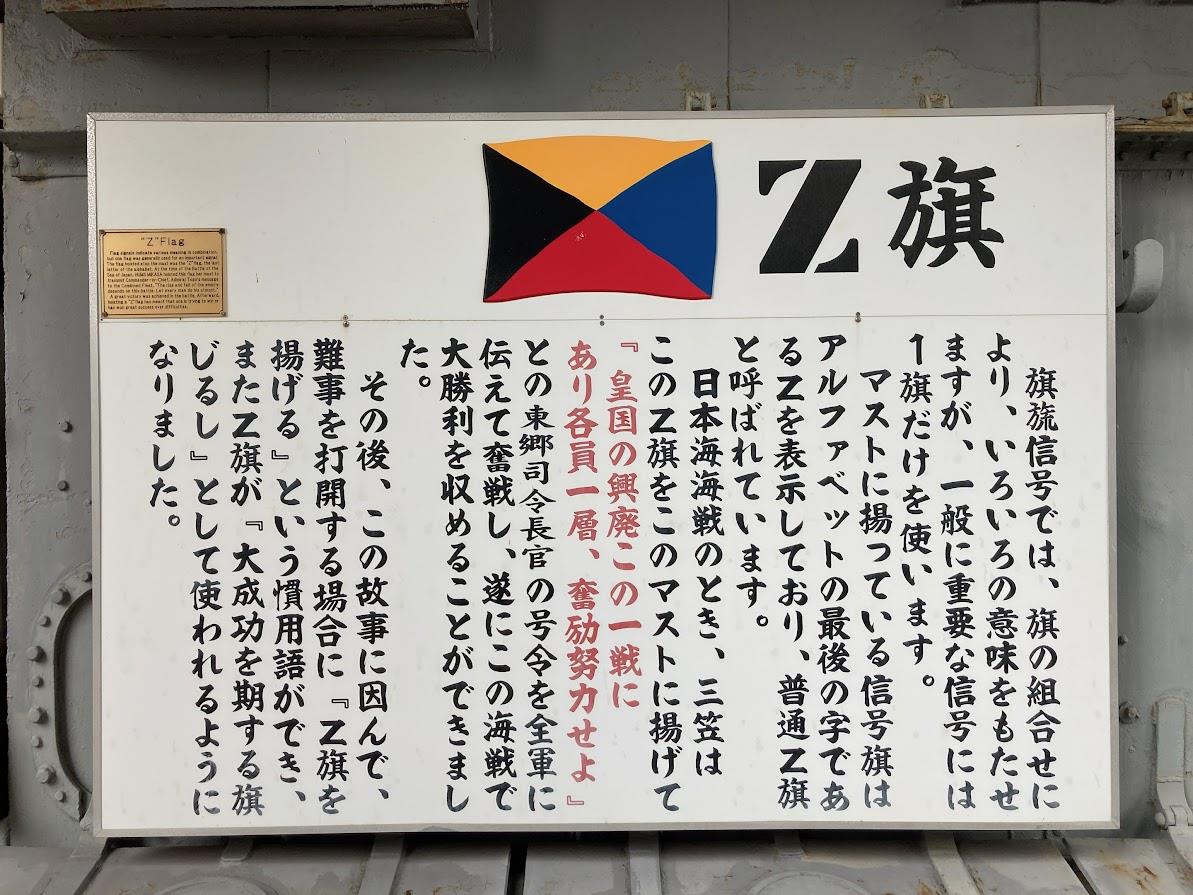 Z旗
旗旒信号では、旗の組合せに
より、いろいろの意味をもたせ
ますが、一般に重要な信号には
1旗だけを使います。
マストに揚っている信号旗は
アルファベットの最後の字であ
るZを表示しており、普通Z旗
と呼ばれています。
日本海海戦のとき、三笠は
このZ旗をこのマストに揚げて
『皇国の興廃この一戦に
あり各員一層、奮励努力せよ』
との東郷司令長官の号令を全軍に
伝えて奮戦し、遂にこの海戦で
大勝利を収めることができまし
た。
その後、この故事に因んで、
難事を打開する場合に『Z旗を
揚げる』という慣用語ができ、
またZ旗が『大成功を期する旗
じるし』として使われるように
なりました。
"Z"Flag
Flag signals indicate various meaning in combination,
but one flag was generally used for an important signal.
The flag hoisted atop the mast was the "Z"flag, the last
letter of the alphabet. At the time of the Battle of the
Sea of Japan, MIKASA hoisted this flag her mast to
transmit Commander-in-Chief, Admiral Togo's message
to the Combined Fleet, "The rise and fall of the empire
depends on this battle. Let every man do his utmost."
A great victory was achieved in the battle. Afterward,
hoisting a "Z"flag has meant that one is trying to win or
has great success over difficulties.